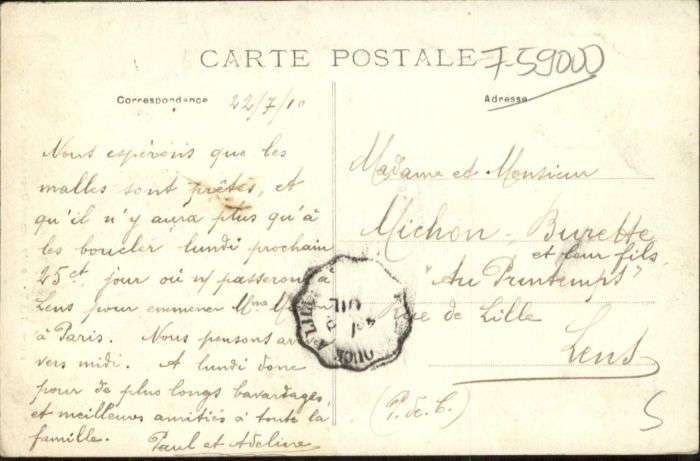 CARTE POSTALE
7-59000
Correspondance
22/7/10
Adresse
Nous espérons que les
malles sont prêtes, et
qu'il n'y aura plus qu'à
les boucler lundi prochain
25 ct jour où n/ passerons à
Lens pour emmener Mme
à Paris. Nous pensons
vers midi. A lundi donc
pour de plus longs bavardages,
et meilleures amitiés à toute la
famille. Paul et Adeline
Madame et Monsieur
Michon-Burette
et leur fils
"Au Printemps"
Rue de Lille
Lens
(P. de C.)
5